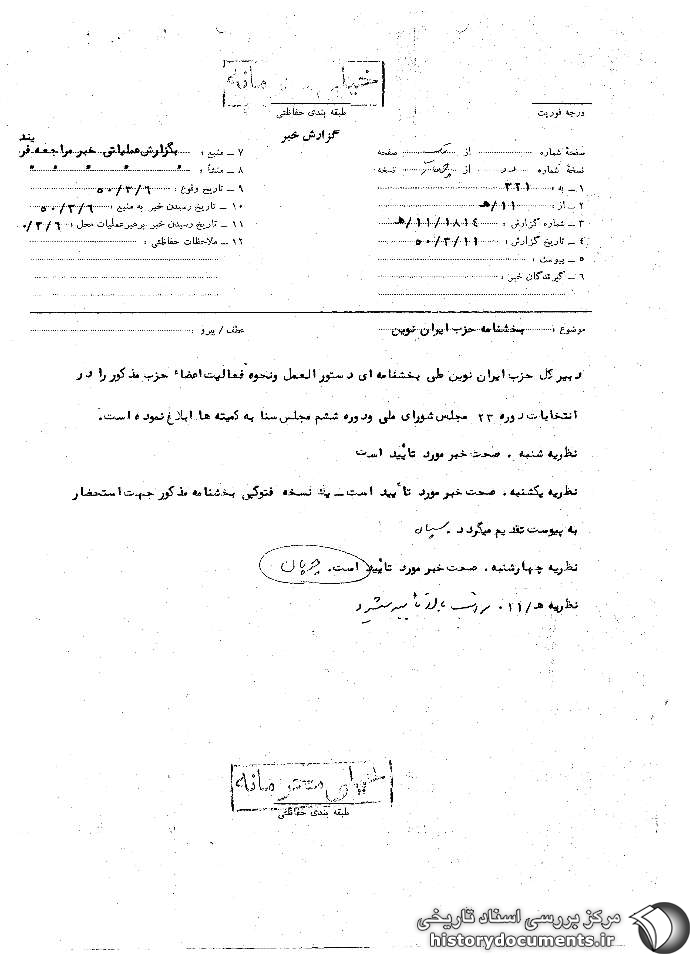 خیلی محرمانه
طبقه بندی حفاظتی
درجه فوریت
گزارش خبر
صفحهٔ شماره از یک صفحه
نسخهٔ شماره دو از چهار نسخه
۱ ـ به : ۳۲۱
۲ ـ از : ۱۱/هـ
۳ ـ شماره گزارش : ۱۱/۱۸۱۴/هـ
۴ ـ تاریخ گزارش : ۵۰/۳/۱۱
۵ ـ پیوست :
۶ ـ گیرندگان خبر :
۷ ـ منبع : بگزارش عملیاتی خبر مراجعه فرمایند
۸ ـ منشأ :
۹ ـ تاریخ وقوع : ۵۰/۳/۶
۱۰ ـ تاریخ رسیدن خبر به منبع : ۵۰/۳/۶
۱۱ ـ تاریخ رسیدن خبر برهبر عملیات محل : ۰/۳/۶
۱۲ ـ ملاحظات حفاظتی :
موضوع : بخشنامه حزب ایران نوین
عطف / پیرو :
دبیر کل حزب ایران نوین طی بخشنامه ای دستور العمل ونحوه فعالیت اعضاء حزب مذکور را در
انتخابات دوره ۲۳ مجلس شورای ملی ودوره ششم مجلس سنا به کمیته ها ابلاغ نموده است.
نظریه شنبه . صحت خبر مورد تأیید است
نظریه یکشنبه . صحت خبر مورد تأیید است ـ یک نسخه فتوکپی بخشنامه مذکور جهت استحضار
به پیوست تقدیم میگردد .
نظریه چهارشنبه . صحت خبر مورد تأیید است.
نظریه هـ/۱۱. مراتب بالا تأیید میشود
خیلی محرمانه
طبقه بندی حفاظتی
مرکز بررسی اسناد تاریخی
historydocuments.ir